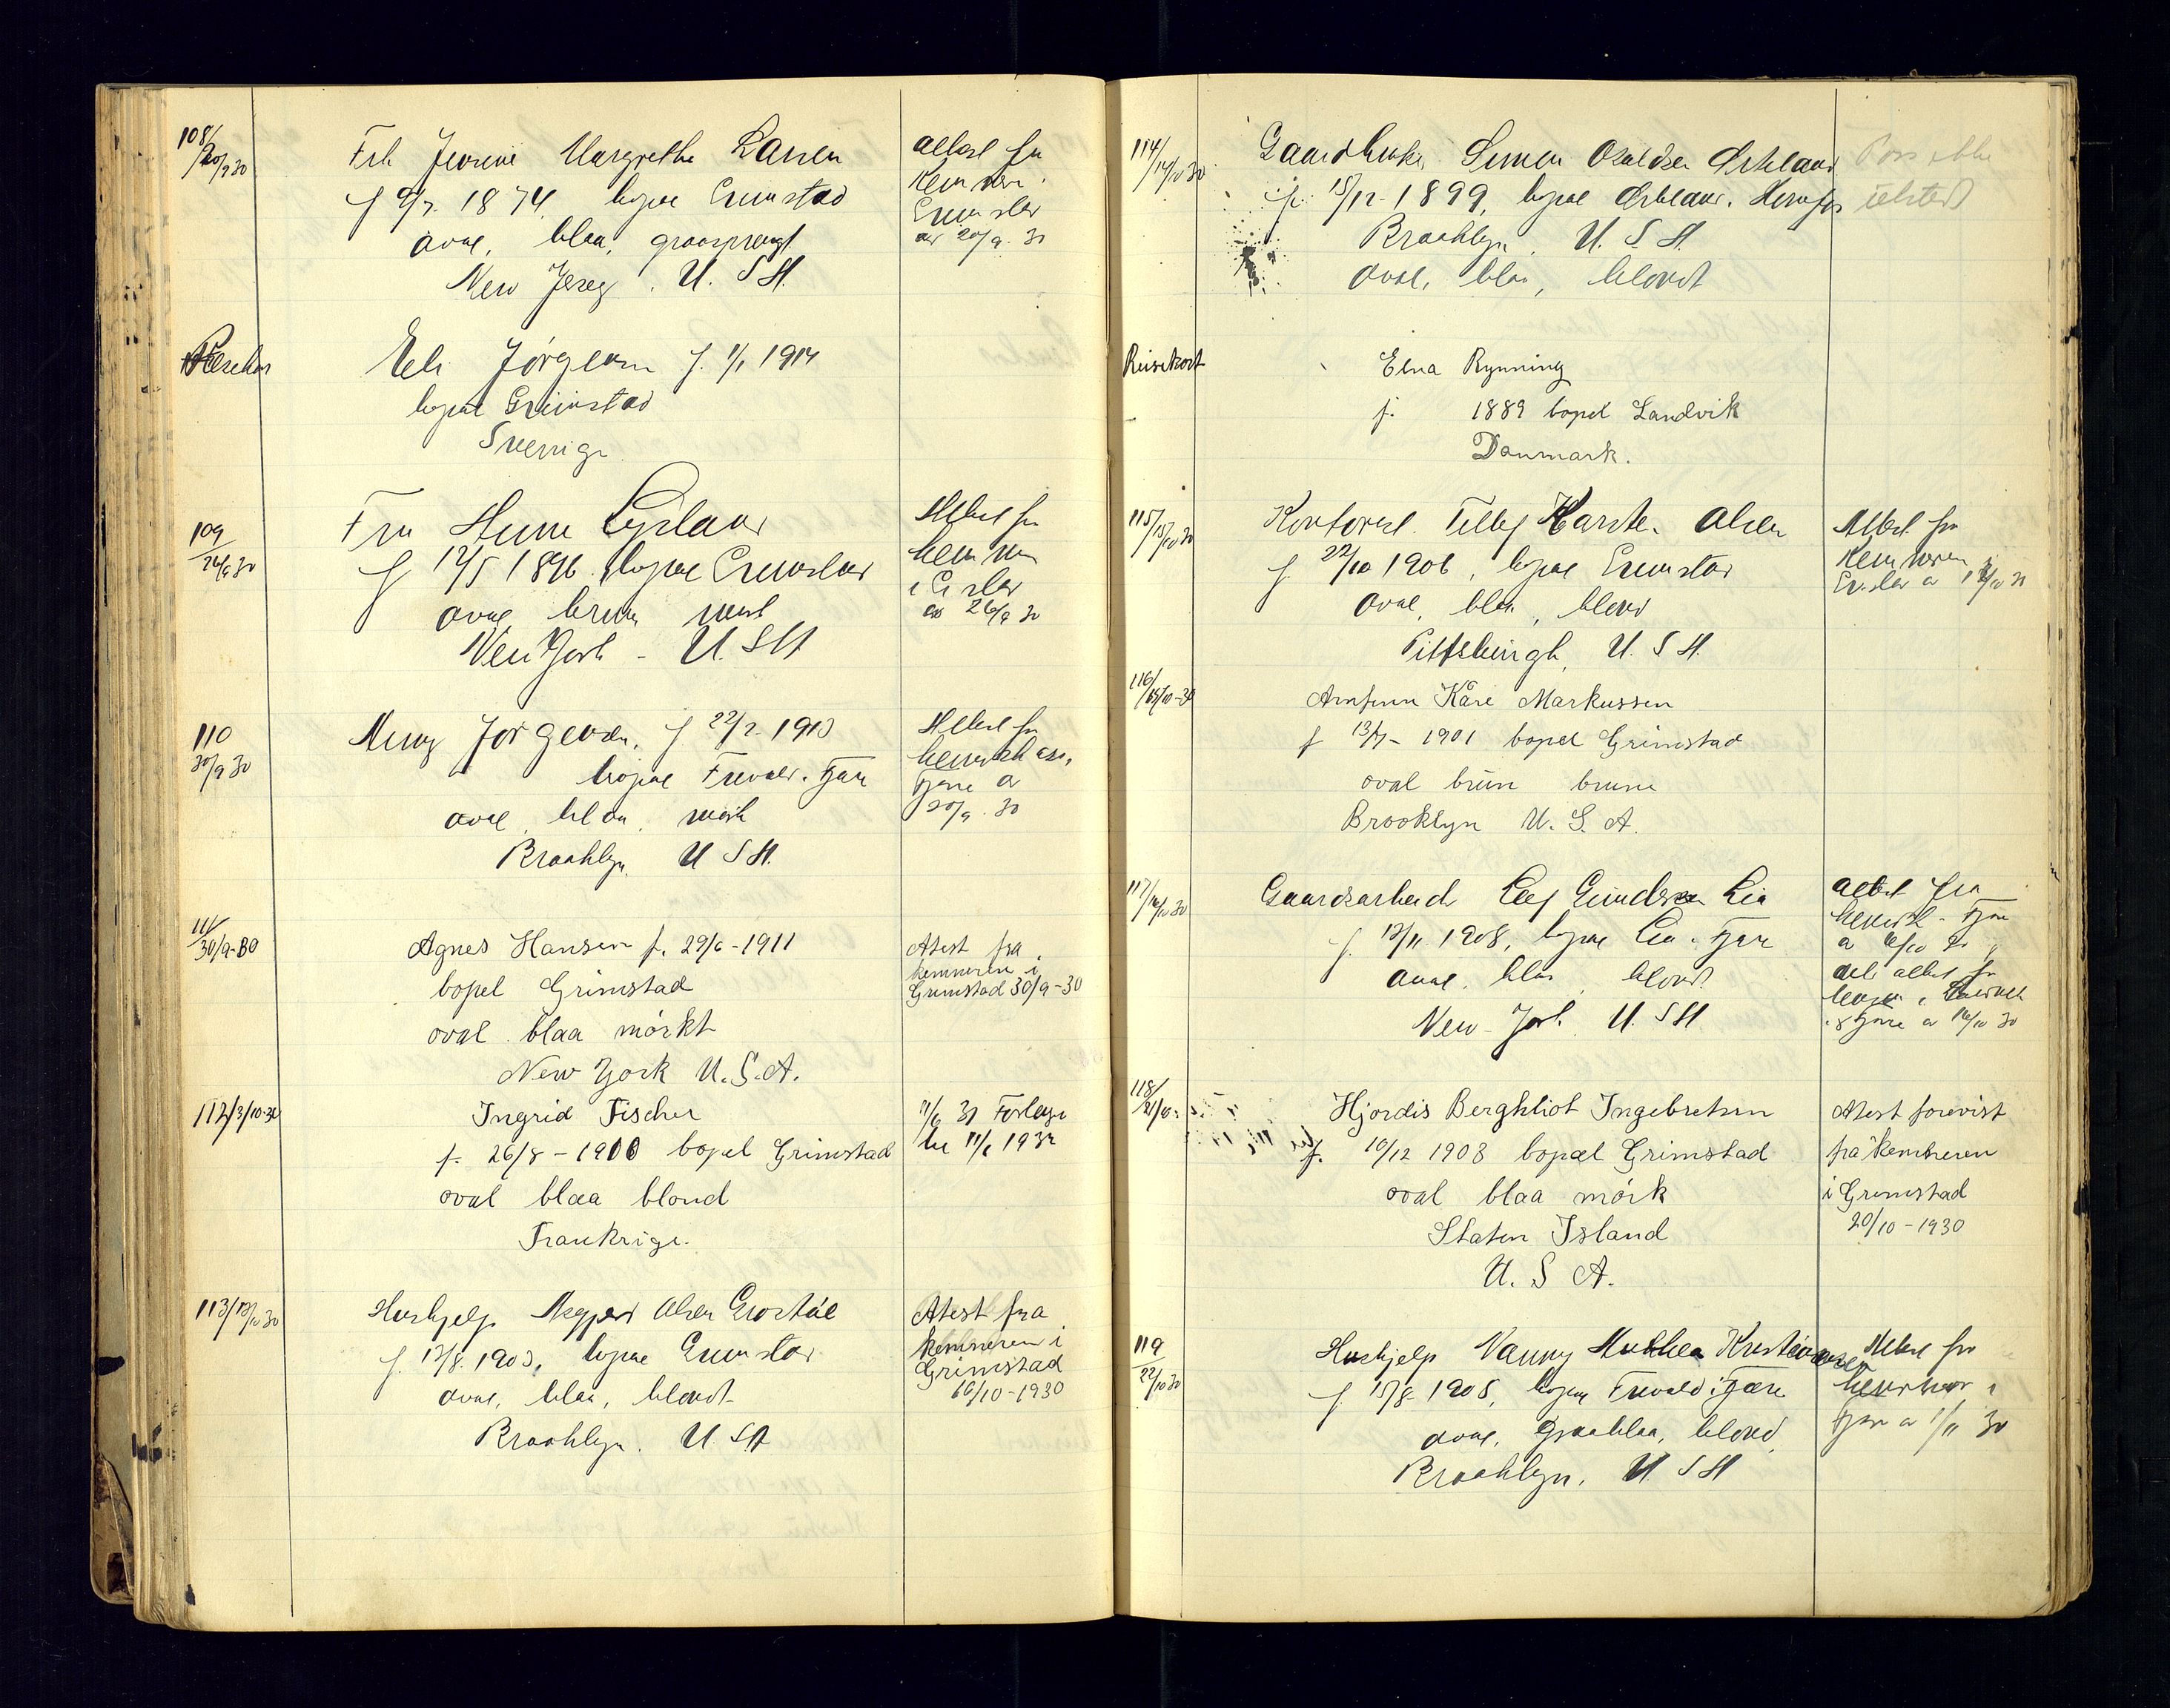 108/
20/9 30
Frk Jensine Margrethe Larsen
f 9/7. 1874, bopæl Grimstad
oval, blaa, graasprengt
New Jersey. U. S A.
attest fra
Kemneren
Grimstad
av 20/9. 30
Reisekort
Jörgensen f. 1/1 1914
bopæl Grimstad
Sverrige
109
26/9 30
Fru
f 12/5 1896. bopæl Grimstad
oval, brun, mørk
New York - U. S A
Attest fra
kemneren
i Grimstad
av 26/9 30
110
30/9 30
Jörgensen, f 22/2. 1910
bopæl Frevold. Fjære
oval, blaa, mørk
Brooklyn. U S A.
Attest fra
Fjære av
30/9. 30
111/
30/9-30
Agnes Hansen f. 29/6-1911
bopel Grimstad
oval blaa mörkt
New York U.S.A.
Atest fra
kemneren i
Grimstad 30/9-30
112/3/10-30
Ingrid Fischer
f. 26/8-1900 bopel Grimstad
oval blaa blond
Frankrige.
11/6 31 Forlenge
til 11/6 1932
113/13/10 30
Hushjelp Olsen
f. 13/8. 1903, bopæl Grimstad
oval, blaa, blondt
Brooklyn. U. S A
Atest fra
kemneren i
Grimstad
10/10-1930
114/
14/10 30
Gaardbruker Simen Osuldsen Birkeland
f. 15/12-1899, bopæl Birkeland. Herefoss
Brooklyn, U. S A.
oval, blaa, blondt
Pass ikke
utsted
Reisekort
Elna Rynning
f. 1889 bopel Landvik
Danmark.
115/
15/10 30
Kontorist Karsten Olsen
f. 22/10 1906, bopæl Grimstad
oval, blaa, blond
Pittsburgh, U. S A.
Attest fra
Kemneren
116/
Arnfinn Kåre Markussen
f 13/7- 1901 bopel Grimstad
oval brun brune
Brooklyn U. S. A.
117/
16/10 30
Gaardsarbeid Leif Gundersen Lia
f. 12/11 1908, bopæl Lia. Fjære
oval, blaa, blond
New-York. U. S A
attest fra
Fjære
118/
21/10
Hjordis Berghliot Ingebretsen
f. 10/12 1908 bopæl Grimstad
oval blaa mörk
Staten Island
U. S A.
Atest forevist
fra kemneren
i Grimstad
20/10-1930
119
22/10 30
Hushjelp Nanny Kristiansen
f. 15/8-1908, bopæl Frevold i Fjære
oval, graablaa, blond
Brooklyn. U S A
Attest fra
kemner i
Fjære av 1/11 30